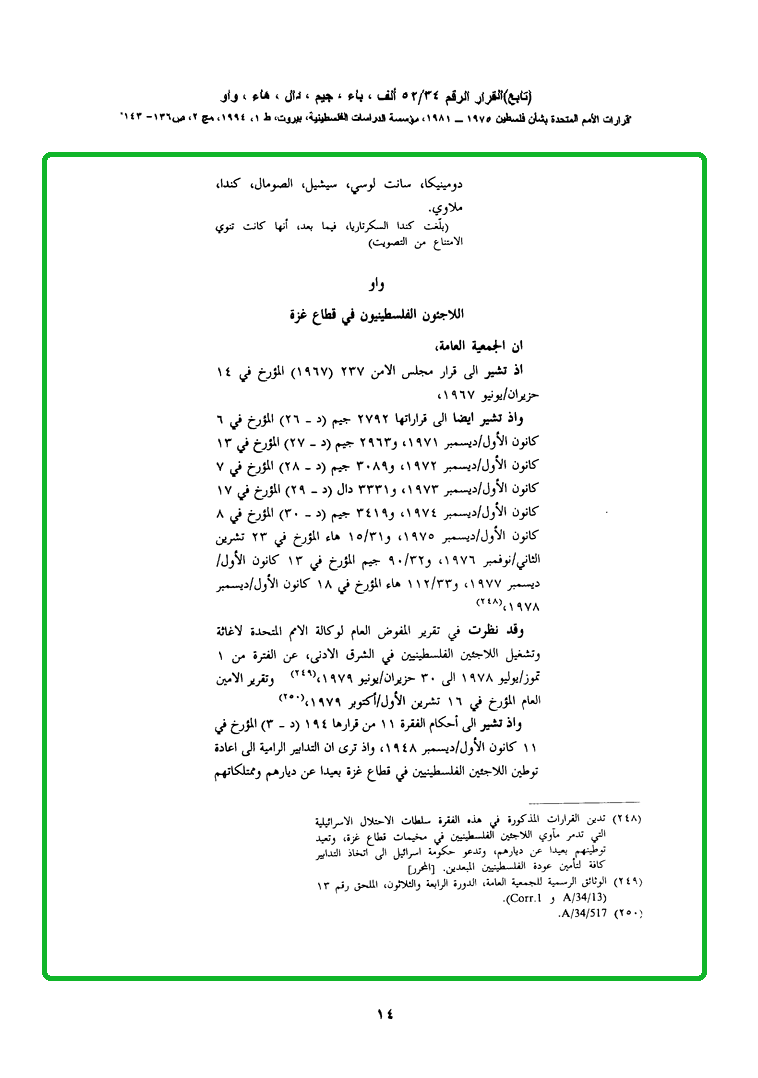 (تابع)القرار الرقم ٥٢/٣٤ ألف ، باء ، جيم ، دال ، هاء ، واو
"قرارات الأمم المتحدة بشأن فلسطين ١٩٧٥ ــ ١٩٨١، مؤسسة الدراسات الفلسطينية، بيروت، ط ١، ١٩٩٤، مج ٢، ص١٣٦– ١٤٣"
دومينيكا، سانت لوسي، سيشيل، الصومال، كندا،
ملاوي.
(بلّغت كندا السكرتاريا، فيما بعد، أنها كانت تنوي
الامتناع من التصويت)
واو
اللاجئون الفلسطينيون في قطاع غزة
ان الجمعية العامة،
اذ تشير الى قرار مجلس الامن ٢٣٧ (١٩٦٧) المؤرخ في ١٤
حزيران/يونيو ١٩٦٧،
واذ تشير ايضا الى قراراتها ٢٧٩٢ جيم (د – ٢٦) المؤرخ في ٦
كانون الأول/ديسمبر ١٩٧١، و٢٩٦٣ جيم (د – ٢٧) المؤرخ في ١٣
كانون الأول/ديسمبر ١٩٧٢، و٣٠٨٩ جيم (د – ٢٨) المؤرخ في ٧
كانون الأول/ديسمبر ١٩٧٣، و٣٣٣١ دال (د – ٢٩) المؤرخ في ١٧
كانون الأول/ديسمبر ١٩٧٤، و٣٤١٩ جيم (د – ٣٠) المؤرخ في ٨
كانون الأول/ديسمبر ١٩٧٥، و١٥/٣١ هاء المؤرخ في ٢٣ تشرين
الثاني/نوفمبر ١٩٧٦، و٩٠/٣٢ جيم المؤرخ في ١٣ كانون الأول/
ديسمبر ١٩٧٧، و١١٢/٣٣ هاء المؤرخ في ١٨ كانون الأول/ديسمبر
١٩٧٨،(٢٤٨)
وقد نظرت في تقرير المفوض العام لوكالة الامم المتحدة لاغاثة
وتشغيل اللاجئين الفلسطينيين في الشرق الادنى، عن الفترة من ١
تموز/يوليو ١٩٧٨ الى ٣٠ حزيران/يونيو ١٩٧٩،(٢٤٩) وتقرير الامين
العام المؤرخ في ١٦ تشرين الأول/أكتوبر ١٩٧٩،(٢٥٠)
واذ تشير الى أحكام الفقرة ١١ من قرارها ١٩٤ (د – ٣) المؤرخ في
١١ كانون الأول/ديسمبر ١٩٤٨، واذ ترى ان التدابير الرامية الى اعادة
توطين اللاجئين الفلسطينيين في قطاع غزة بعيدا عن ديارهم وممتلكاتهم
(٢٤٨) تدين القرارات المذكورة في هذه الفقرة سلطات الاحتلال الاسرائيلية
التي تدمر مآوي اللاجئين الفلسطينيين في مخيمات قطاع غزة، وتعيد
توطينهم بعيدا عن ديارهم، وتدعو حكومة اسرائيل الى اتخاذ التدابير
كافة لتأمين عودة الفلسطينيين المبعدين. [المحرر]
(٢٤٩) الوثائق الرسمية للجمعية العامة، الدورة الرابعة والثلاثون، الملحق رقم ١٣
(A/34/13 و Corr.1).
(٢٥٠) A/34/517.
١٤